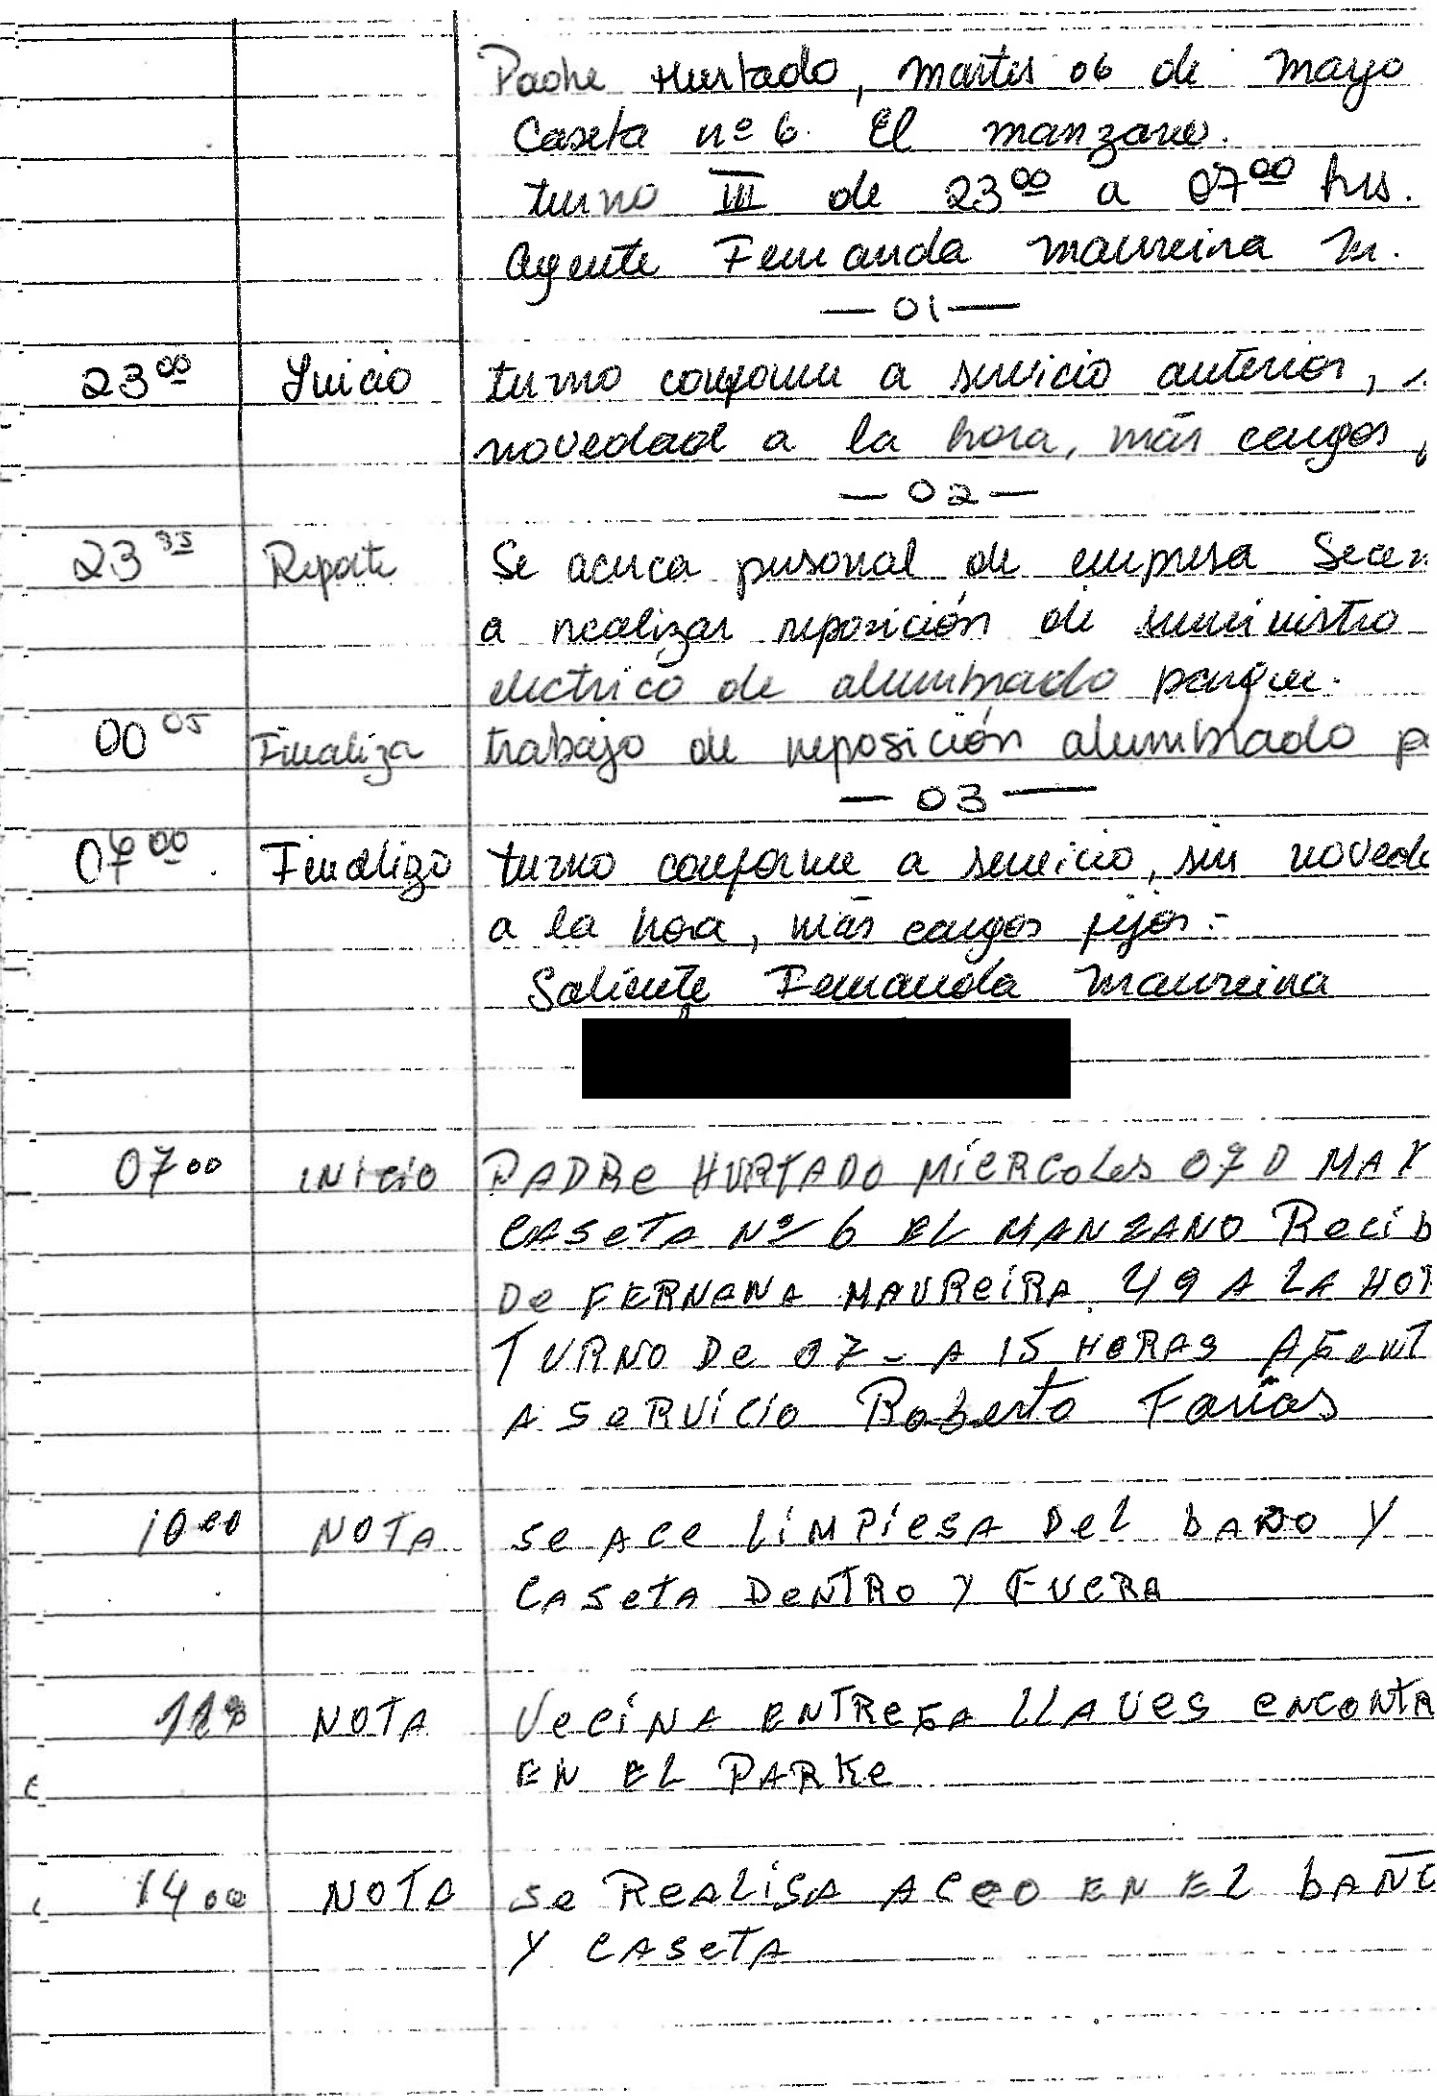 Padre Hurtado, martes 06 de mayo
Caseta nº 6. El manzano.
turno III de 23 00 a 07 00 hrs.
Agente Fernanda Maureira M.
— 01 —
23 00 Inicio turno conforme a servicio anterior,
novedad a la hora, más cargos
— 02 —
23 35 Reporte Se acerca personal de empresa
a realizar reposición de suministro
electrico de alumbrado parque.
00 05 Finaliza trabajo de reposición alumbrado p
— 03 —
07 00. Finalizo turno conforme a servicio, sin noved
a la hora, más cargos fijos.-
Saliente Fernanda Maureira
07 00 INICIO PADRE HURTADO MIERCOLES 07 D MAY
CASETA Nº 6 EL MANZANO RECIB
DE FERNANA MAUREIRA. A LA HOR
TURNO DE 07 - A 15 HORAS AGENT
A SERVICIO Roberto Farias
10 00 NOTA SE ACE LIMPIESA DEL BAÑO Y
CASETA DENTRO Y FUERA
NOTA VECINA ENTREGA LLAVES ENCONTR
EN EL PARKE
14 00 NOTA SE REALISA ACEO EN EL BAÑO
Y CASETA